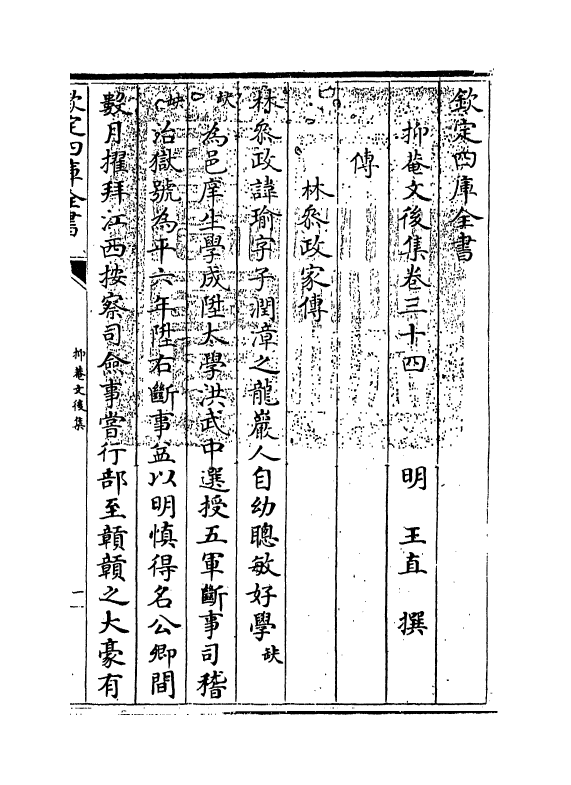 欽定四庫全書
抑菴文後集卷三十四
明 王直 撰
傳
林叅政家傳
林叅政諱瑜字子潤漳之龍巖人自幼聰敏好學缺
缺為邑庠生學成陞太學洪武中選授五軍斷事司稽
缺治獄號為平六年陞右斷事益以明慎得名公卿間
數月擢拜江西按察司僉事嘗行部至贑贑之大豪有
欽定四庫全書
抑菴文後集
一